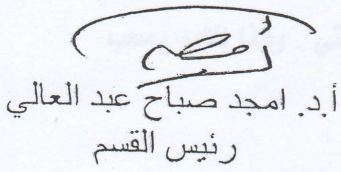 أ.د. امجد صباح عبد العالي
رئيس القسم